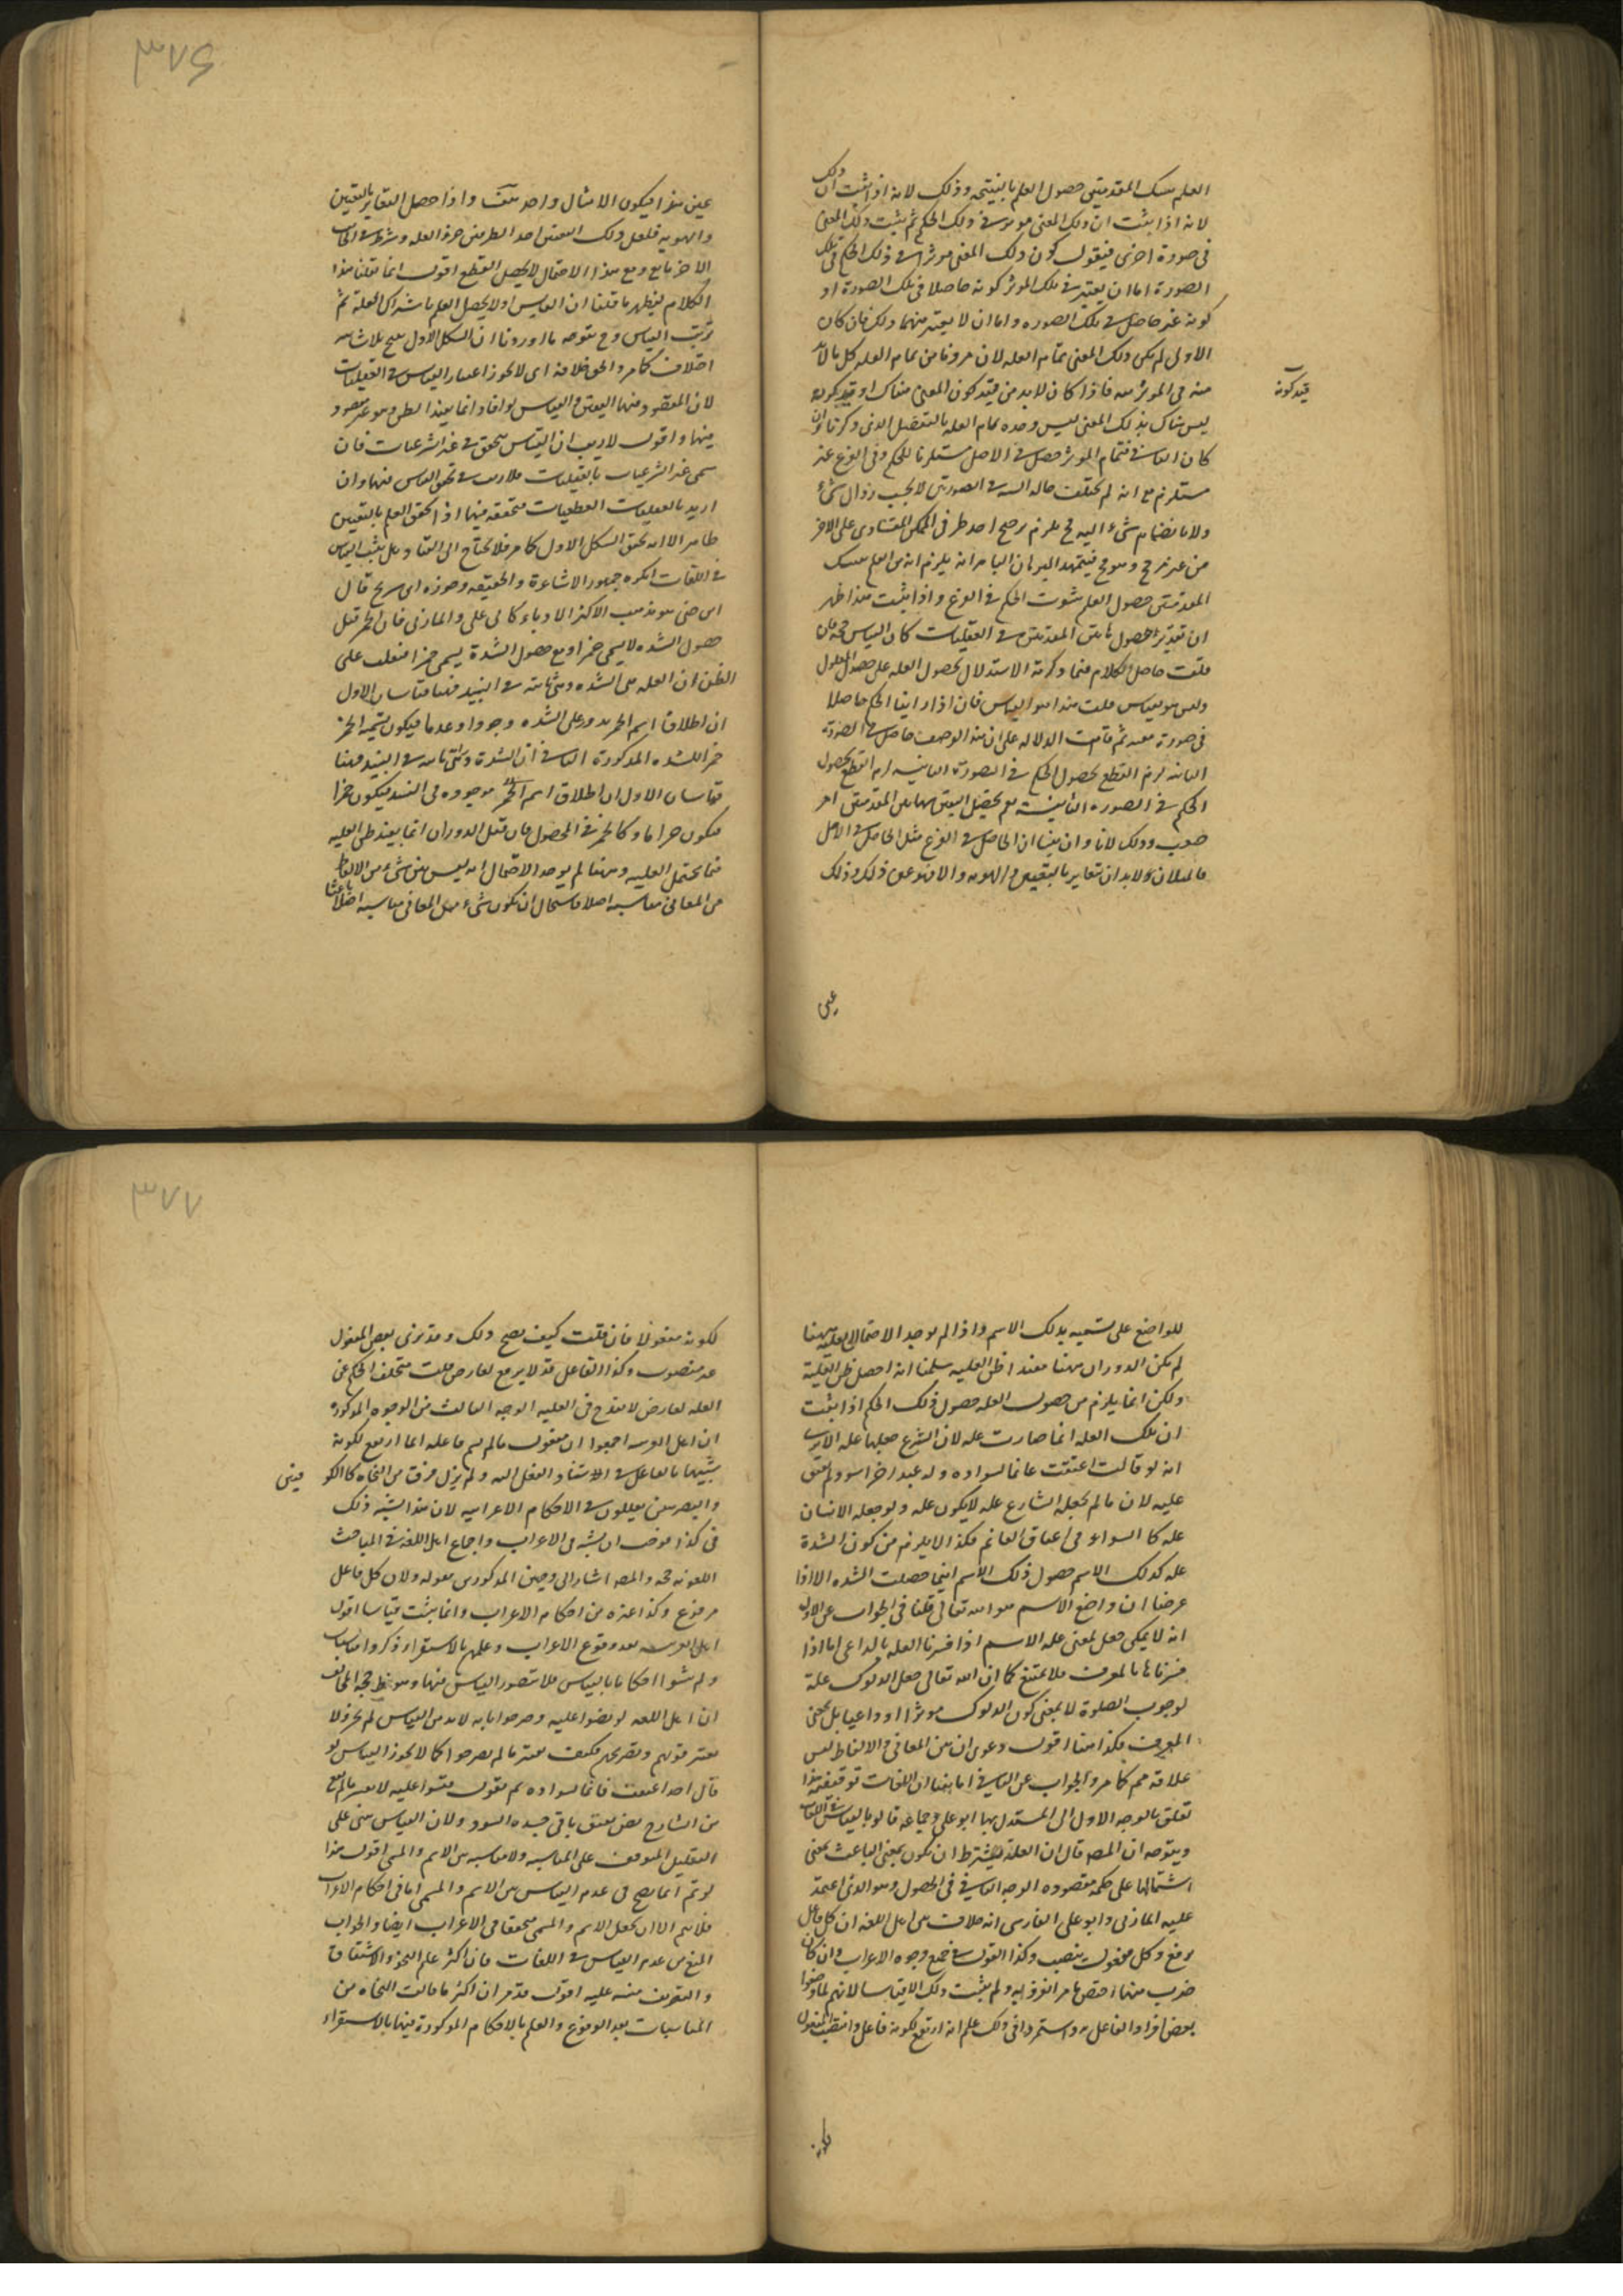 العلم بتينك المقدمتين حصول العلم بالنتيجة وذلك لانه اذا ثبت ان ذلك
لانه اذا ثبت ان ذلك المعنى موثر فى ذلك الحكم ثم ثبت ذلك المعنى
فى صورة اخرى فنقول كون ذلك المعنى موثرا فى ذلك الحكم فى تلك
الصورة اما ان يعتبر فى تلك الموثر كونه حاصلا فى تلك الصورة او
كونه غير حاصل فى تلك الصوره واما ان لا يعتبر منهما ذلك فان كان
الاولى لم يكن ذلك المعنى تمام العله لان مرادنا من تمام العله كل ما لابد
قيد كونه
منه فى الموثريه فاذا كان لابد من قيد كون المعنى هناك او قيد كونه
ليس هناك بذلك المعنى ليس وحده تمام العله بالتفصيل الذى ذكرنا وان
كان الثانى فتمام الموثر حصل فى الاصل مستلزما للحكم وفى الفرع غير
مستلزم مع انه لم يختلف حاله البته فى الصورتين لا بحسب زوال شىء
ولا بانضمام شىء اليه فح يلزم ترجح احد طرفى الممكن المتساوى على الاخر
من غير مرجح وهو مح فبهذا البرهان الباهر انه يلزم انه من العلم بتينك
المقدمتين حصول العلم بثبوت الحكم فى الفرع واذا ثبت هذا ظهر
ان بتقدير حصول هاتين المقدمتين فى العقليات كان القياس حجة فان
قلت حاصل الكلام فيما ذكرته الاستدلال بحصول العله على حصول المعلول
وليس هو بقياس قلت هذا هو القياس فان اذا راينا الحكم حاصلا
فى صورة معينه ثم قامت الدلاله على ان هذا الوصف حاصل فى الصورة
الثانيه لزم القطع بحصول الحكم فى الصورة الثانيه لزم القطع بحصول
الحكم فى الصوره الثانية نعم تحصيل اليقين بهاتين المقدمتين امر
صعب وذلك لانا وان بينا ان الحاصل فى الفرع مثل الحاصل فى الاصل
فالمثلان لابد ان يتغايرا بالتعيين والهويه والا فهو عين ذلك وذلك
عين
عين هذا فيكون الامثال واحد هف واذا حصل التغاير بالتعيين
والهويه فلعل ذلك التعين احد الطرفين جزء العله وشرط فى الجانب
الاخر مانع ومع هذا الاحتمال لا يحصل القطع اقول انما نقلنا هذا
الكلام ليظهر ما قلنا ان القايس اولا يحصل العلم باشتراك العلة ثم
ترتيب القياس وح يتوجه ما اوردنا ان الشكل الاول ينتج بلا شائبه
اختلاف كما مر والحق خلافه اى لا يجوز اعتبار القياس فى العقليات
لان المقصود منها اليقين والقياس لو افاد انما يفيد الظن وهو غير مقصود
منها واقول لاريب ان القياس يتحقق فى غير الشرعيات فان
سمى غير الشرعيات بالعقليات فلاريب فى تحقق القياس فيها وان
اريد بالعقليات القطعيات متحققه فيها اذا تحقق العلم باليقين
ظاهر الا انه تحقق الشكل الاول كما مر فلا يحتاج الى القياس بل يثبت القياس
فى اللغات انكره جمهور الاشاعرة والحنفيه وجوزه ابن سريج قال
ابن جنى هو مذهب اكثر الادباء كابى على والمازنى فان الخمر قبل
حصول الشده لا يسمى خمرا ومع حصول الشدة يسمى خمرا فيغلب على
الظن ان العله هى الشده وهى ثابته فى النبيذ فهنا قياسان الاول
ان اطلاق اسم الخمر يدور على الشده وجودا وعدما فيكون تسمية الخمر
خمرا للشده المذكورة الثانى ان الشدة وهى ثابته فى النبيذ فهنا
قياسان الاول ان اطلاق اسم الخمر موجوده فى النبيذ فيكون خمرا
فيكون حراما وكالخمر فى المحصول فان قيل الدوران انما يفيد ظن العليه
فيما يحتمل العليه وههنا لم يوجد الاحتمال انه ليس بين شىء من الالفاظ
من المعانى مناسبه اصلا فاستحال ان يكون شىء من المعانى مناسبه اصلا باعثا
للواضع على تسميه بذلك الاسم واذا لم يوجد الاحتمال العليه ههنا
لم يكن الدوران ههنا مفيدا ظن العليه سلمنا انه احصل ظن العلية
ولكن انما يلزم من حصول العله حصول ذلك الحكم اذا ثبت
ان تلك العله انما صارت عله لان الشرع جعلها عله الا يرى
انه لو قالت اعتقت غانما لسواده وله عبد اخر اسود لم يعتق
عليه لان ما لم يجعله الشارع عله لا يكون عله ولو جعله الانسان
عله كالسواد فى اعتاق الغانم فكذا لا يلزم من كون الشدة
عله لذلك الاسم حصول ذلك الاسم اينما حصلت الشده الا اذا
عرضنا ان واضع الاسم هو الله تعالى قلنا فى الجواب عن الاول
انه لا يمكن جعل المعنى عله الاسم اذا فسرنا العله بالداعى اما اذا
فسرناها بالمعرف فلا يمتنع كما ان الله تعالى جعل الدلوك علة
لوجوب الصلوة لا بمعنى كون الدلوك موثرا او داعيا بل بمعنى
المعرف فكذا ههنا اقول دعوى ان بين المعانى والالفاظ ليس
علاقه مم كما مر والجواب عن الثانى انا بينا ان اللغات توقيفيه هذا
تعلق بالوجه الاول الى المستدل بها ابو على وجماعه قالوا بالقياس فى اللغات
ويتوجه ان المص قال ان العلة يشترط ان يكون بمعنى الباعث بمعنى
اشتمالها على حكمه مقصوده الوجه الثانى فى المحصول وهو الذى اعتمد
عليه المازنى وابو على الفارسى انه خلاف بين اهل اللغه ان كل فاعل
يرفع وكل مفعول ينصب وكذا القول فى جميع وجوه الاعراب وان كان
ضرب منهما اختص بامر انفرد به ولم يثبت ذلك الا قياسا لانهم لما وضعوا
بعض افراد الفاعل به واستمر ذلك علم انه ارتفع لكونه فاعل وانتصب المفعول
لكونه مفعولا فان قلت كيف يصح ذلك وقد نرى بعض المفعول
غير منصوب وكذا الفاعل قد لا يرفع لعارض قلت تخلف الحكم عن
العله لعارض لا يقدح فى العليه الوجه الثالث من الوجوه المذكوره
ان اهل العربيه اجمعوا ان مفعول ما لم يسم فاعله انما ارتفع لكونه
شبيها بالفاعل فى الاستناد الفعل اليه ولم يزل فرقا من النحاه كالكو فيين
والبصريين يعللون فى الاحكام الاعرابيه لان هذا الشبه ذلك
فى كذا فوجب ان يشبه فى الاعراب واجماع اهل اللغه فى المباحث
اللغويه حجه والمص اشار الى وجهين المذكورين بقوله ولان كل فاعل
مرفوع وكذا غيره من احكام الاعراب وانما يثبت قياسا اقول
اهل العربيه بعد وقوع الاعراب وعلمهم بالاستقراء ذكروا مناسبات
ولم يثبتوا احكاما بالقياس فلا يتصور القياس فيها وهو يظهر حجه المخالف
ان اهل اللغه لو نصوا عليه وصرحوا بانه لابد من القياس لم يجز ولا
يعتبر قولهم وتصريحهم فكيف يعتبر ما لم يصرحوا كما لا يجوز القياس لو
قال احد اعتقت غانما لسواده ثم يقول قيسوا عليه لا يعتبر ما لم يقع
من الشارع نص بعتق باقى عبيده السود ولان القياس مبنى على
التعليل الموقوف على المناسبه ولا مناسبه بين الاسم والمسمى اقول هذا
لو تم انما يصح فى عدم القياس بين الاسم والمسمى اما فى احكام الاعراب
فلا يتم الا ان يجعل الاسم والمسمى متحققا فى الاعراب ايضا والجواب
المنع من عدم القياس فى اللغات فان اكثر علم النحو والاشتقاق
والتصريف مبنيه عليه اقول قد مر ان اكثر ما قالت النحاه من
المناسبات بعد الوقوع والعلم بالاحكام المذكورة فيها بالاستقراء
٣٧٦
٣٧٧